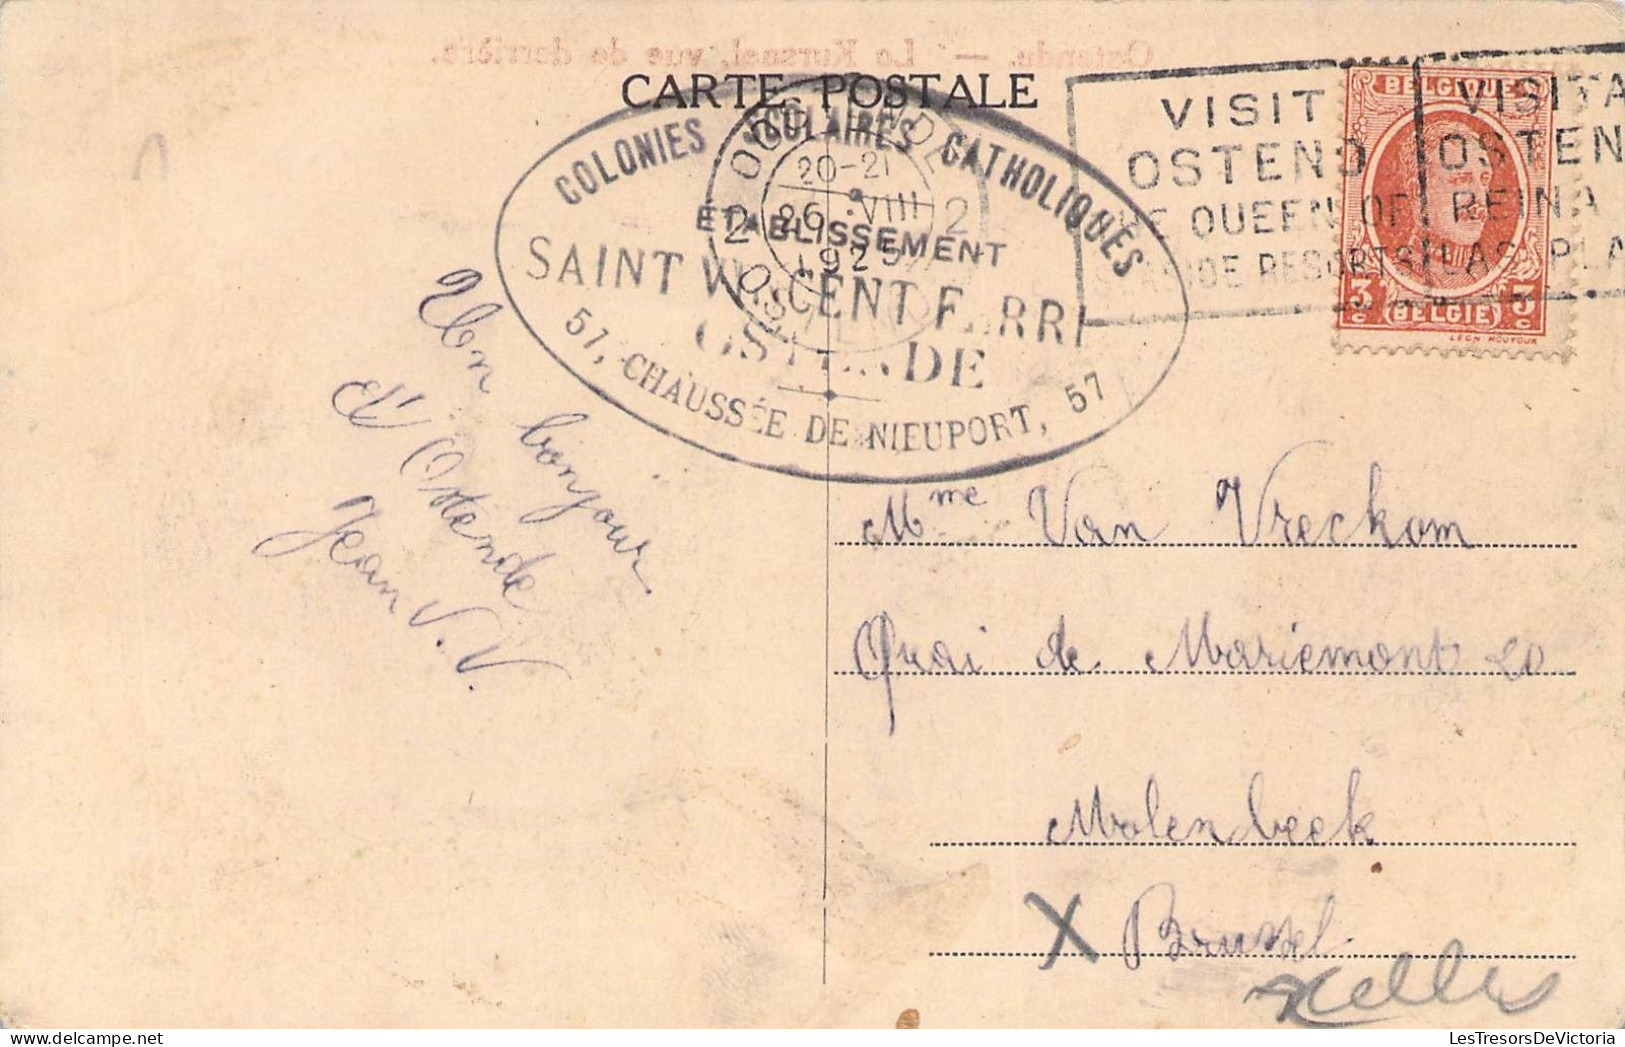 Ostende. — Le Kursaal, vue de derrière.
CARTE POSTALE
COLONIES SCOLAIRES CATHOLIQUES
ETABLISSEMENT
SAINT VINCENT FERRI
OSTENDE
57, CHAUSSÉE DE NIEUPORT, 57
OOSTENDE
20-21
2 26 VIII 2
1925
OSTENDE
VISIT
OSTEND
THE QUEEN OF
SEASIDE RESORTS
VISITA
OSTEN
REINA
LAS PLA
BELGIQUE
3c 3c
(BELGIE)
LEON HOUYOUX
Un bonjour
d'Ostende
Jean V.V.
Mme Van Vreckom
Quai de Mariemont 20
Molenbeek
X Bruxel
xelles
LesTresorsDeVictoria